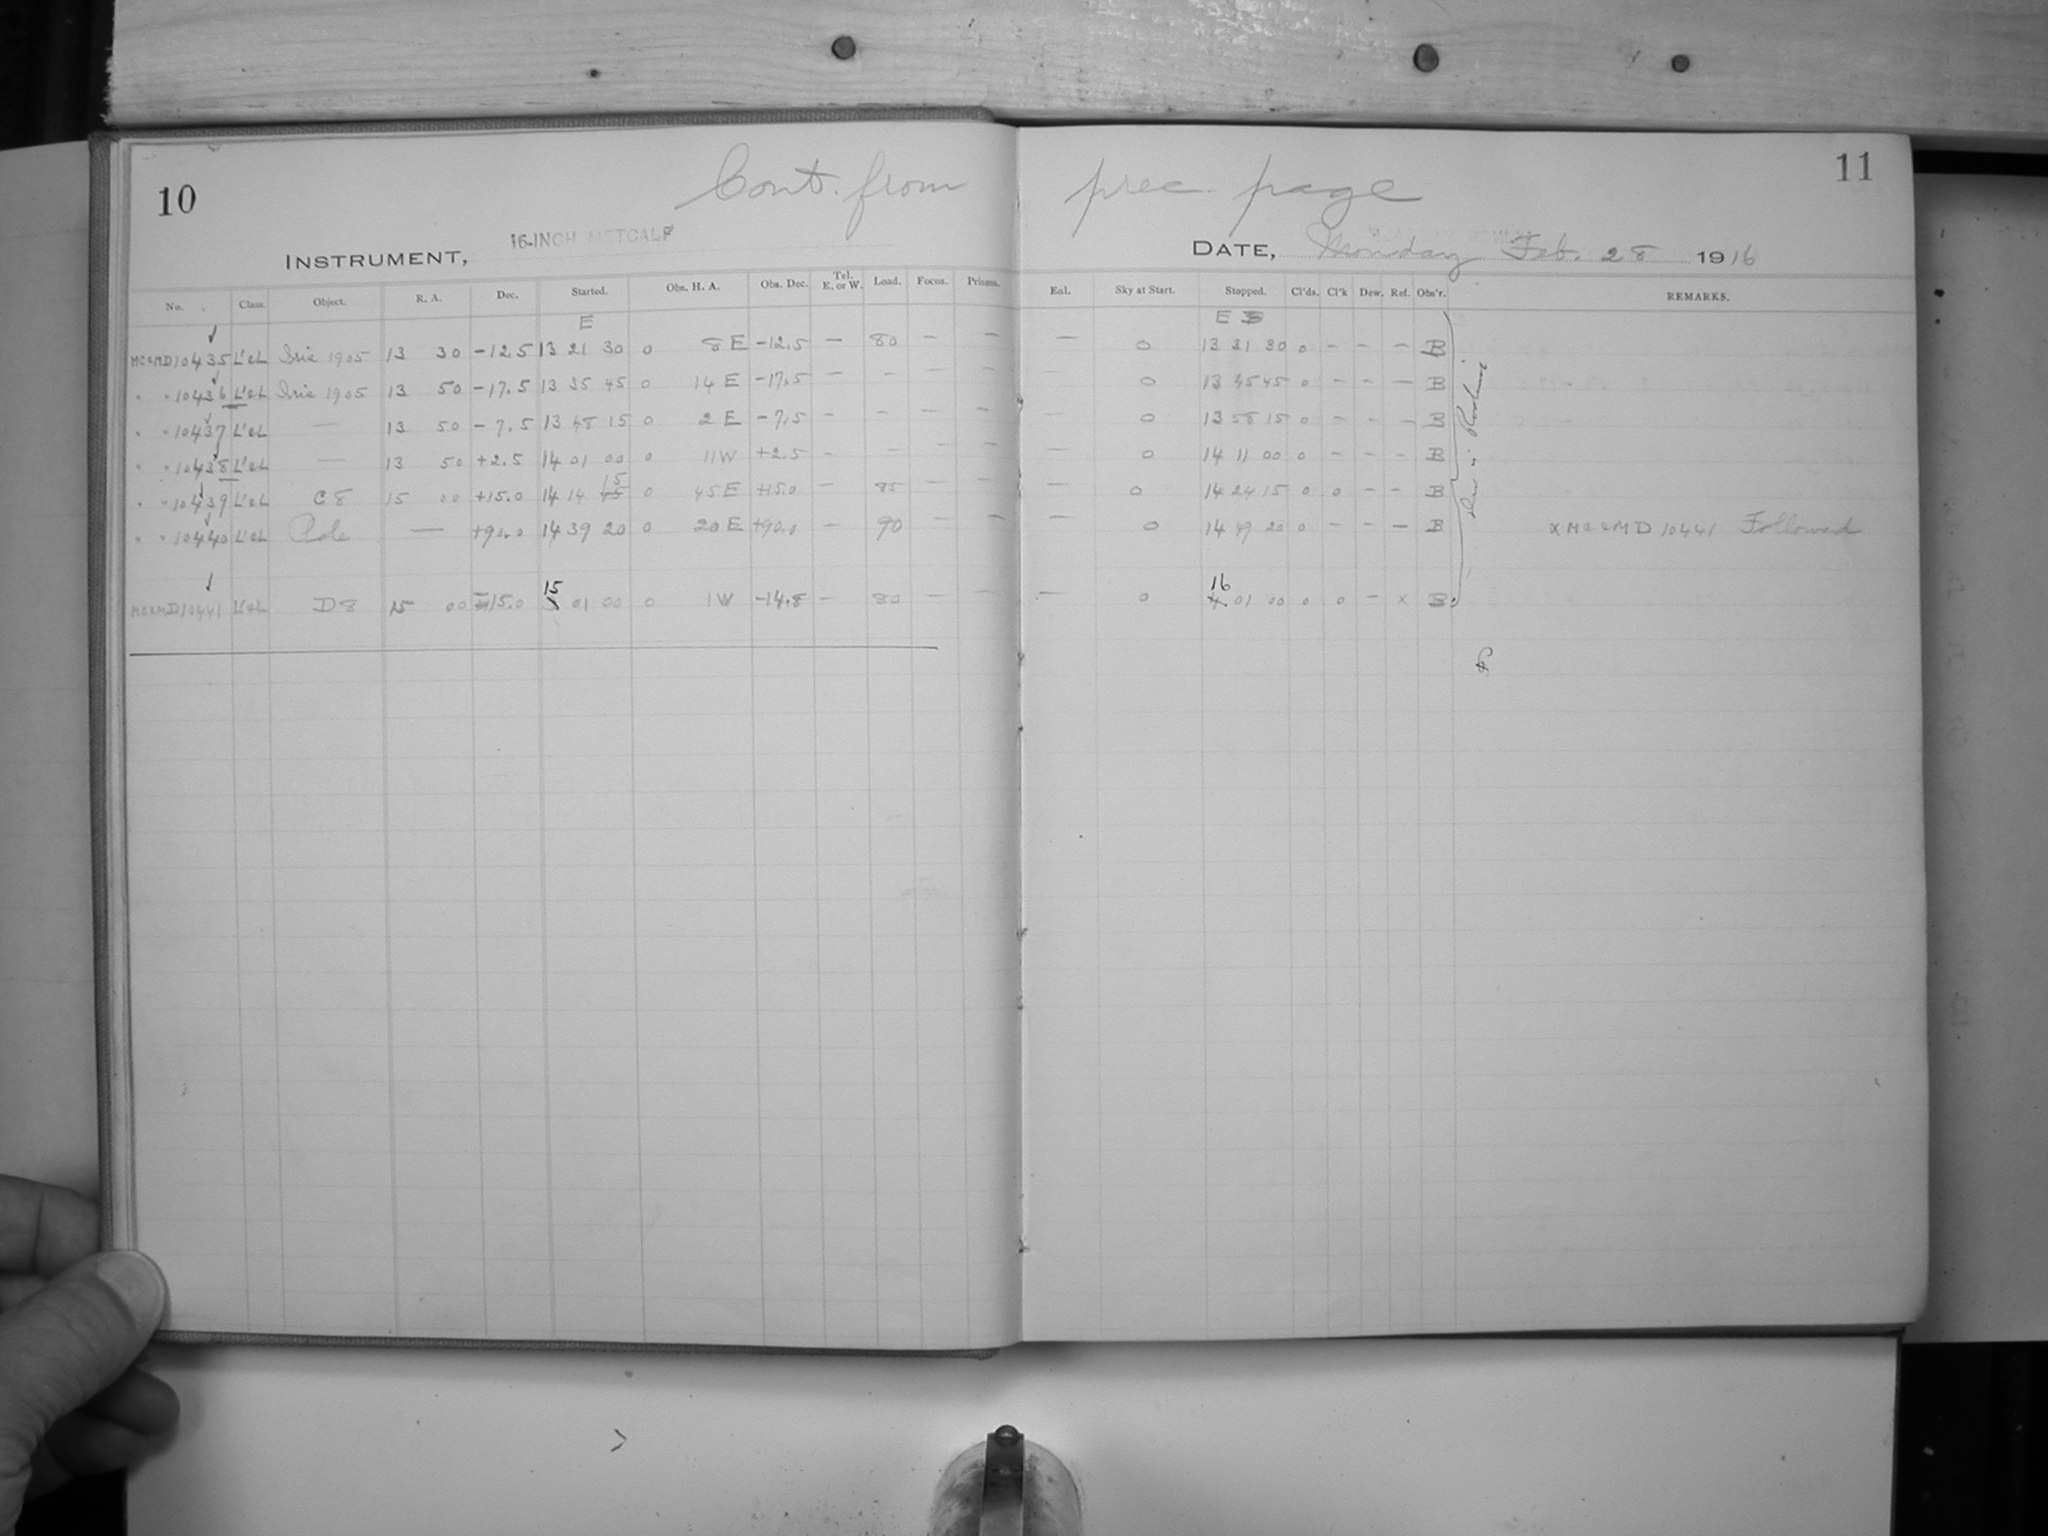 10
Cont. from prec. page
11
16-INCH METCALF
INSTRUMENT,
DATE, Monday Feb. 28 1916
No. Class. Object. R. A. Dec. Started. Obs. H. A. Obs. Dec. Tel. E. or W. Load. Focus. Prisms. Eal. Sky at Start. Stopped. Cl'ds. Cl'k Dew. Ref. Obs'r. REMARKS.
E E
MC&MD10435 L'&L Iris 1905 13 30 -12.5 13 21 30 0 8 E -12.5 — 80 — — — 0 13 31 30 0 - - - B
" " 10436 L'&L Iris 1905 13 50 -17.5 13 35 45 0 14 E -17.5 — - - - — 0 13 45 45 0 - - — B
" " 10437 L'&L — 13 50 - 7.5 13 48 15 0 2 E - 7.5 — - — — — 0 13 58 15 0 - - - B
" " 10438 L'&L — 13 50 +2.5 14 01 00 0 11 W +2.5 - — — — — 0 14 11 00 0 - - - B
" " 10439 L'&L C 8 15 00 +15.0 14 14 15 0 45 E +15.0 — 85 — — — 0 14 24 15 0 0 - - B
" " 10440 L'&L Pole — +90.0 14 39 20 0 20 E +90.0 — 90 — — — 0 14 49 20 0 - - — B x MC&MD 10441 Followed
MC&MD10441 L'&L D 8 15 00 -15.0 15 01 00 0 1 W -14.8 — 80 — — — 0 16 01 00 0 0 - x B